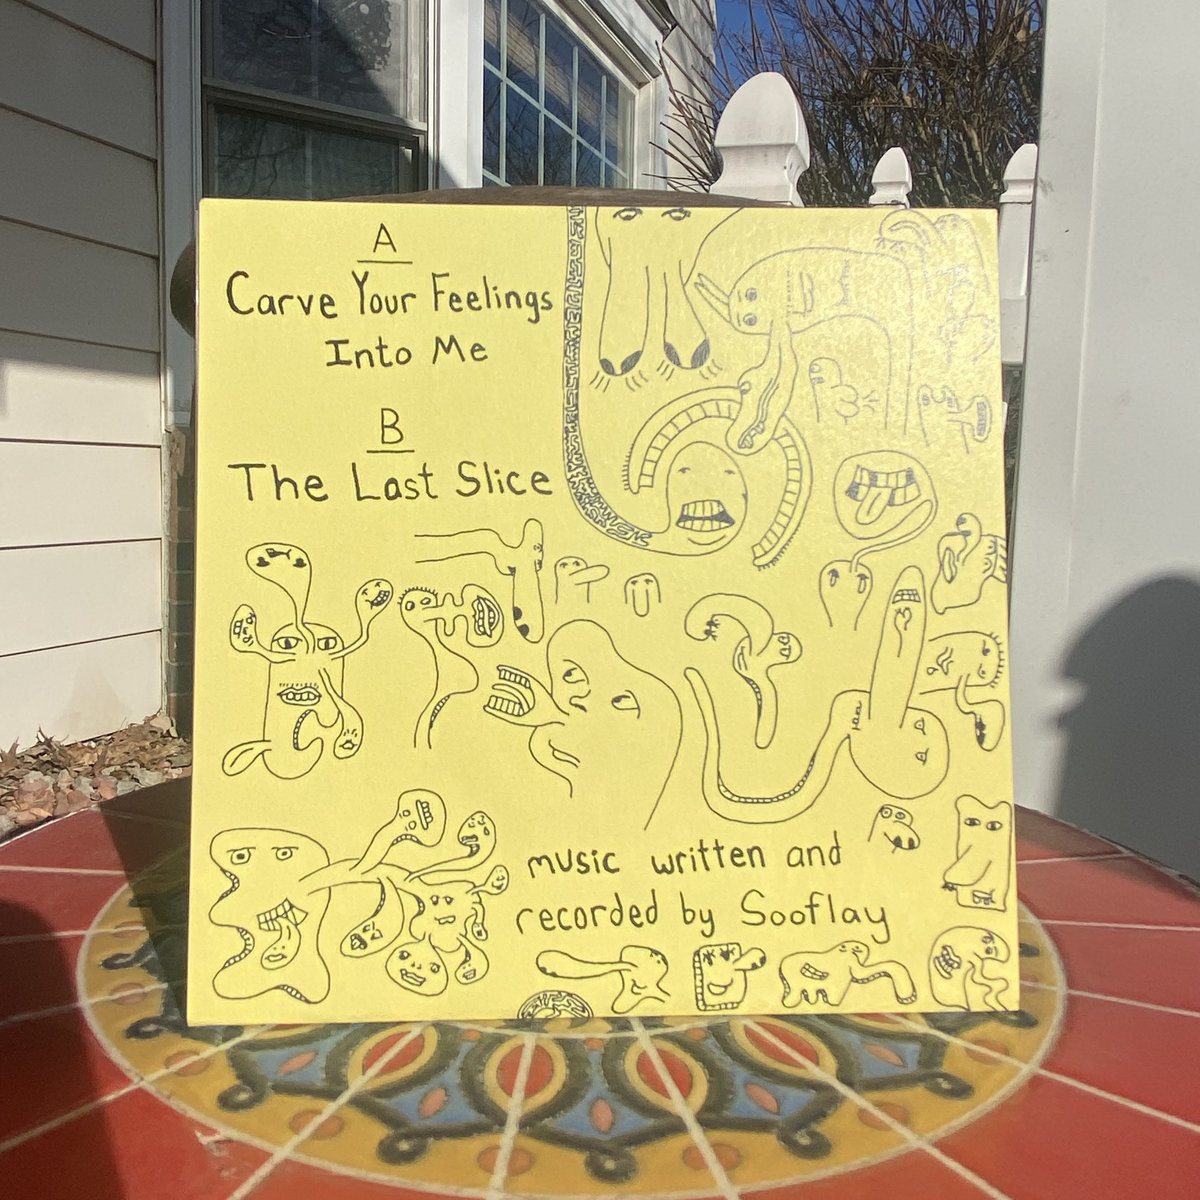 A
Carve Your Feelings
Into Me
B
The Last Slice
music written and
recorded by Sooflay